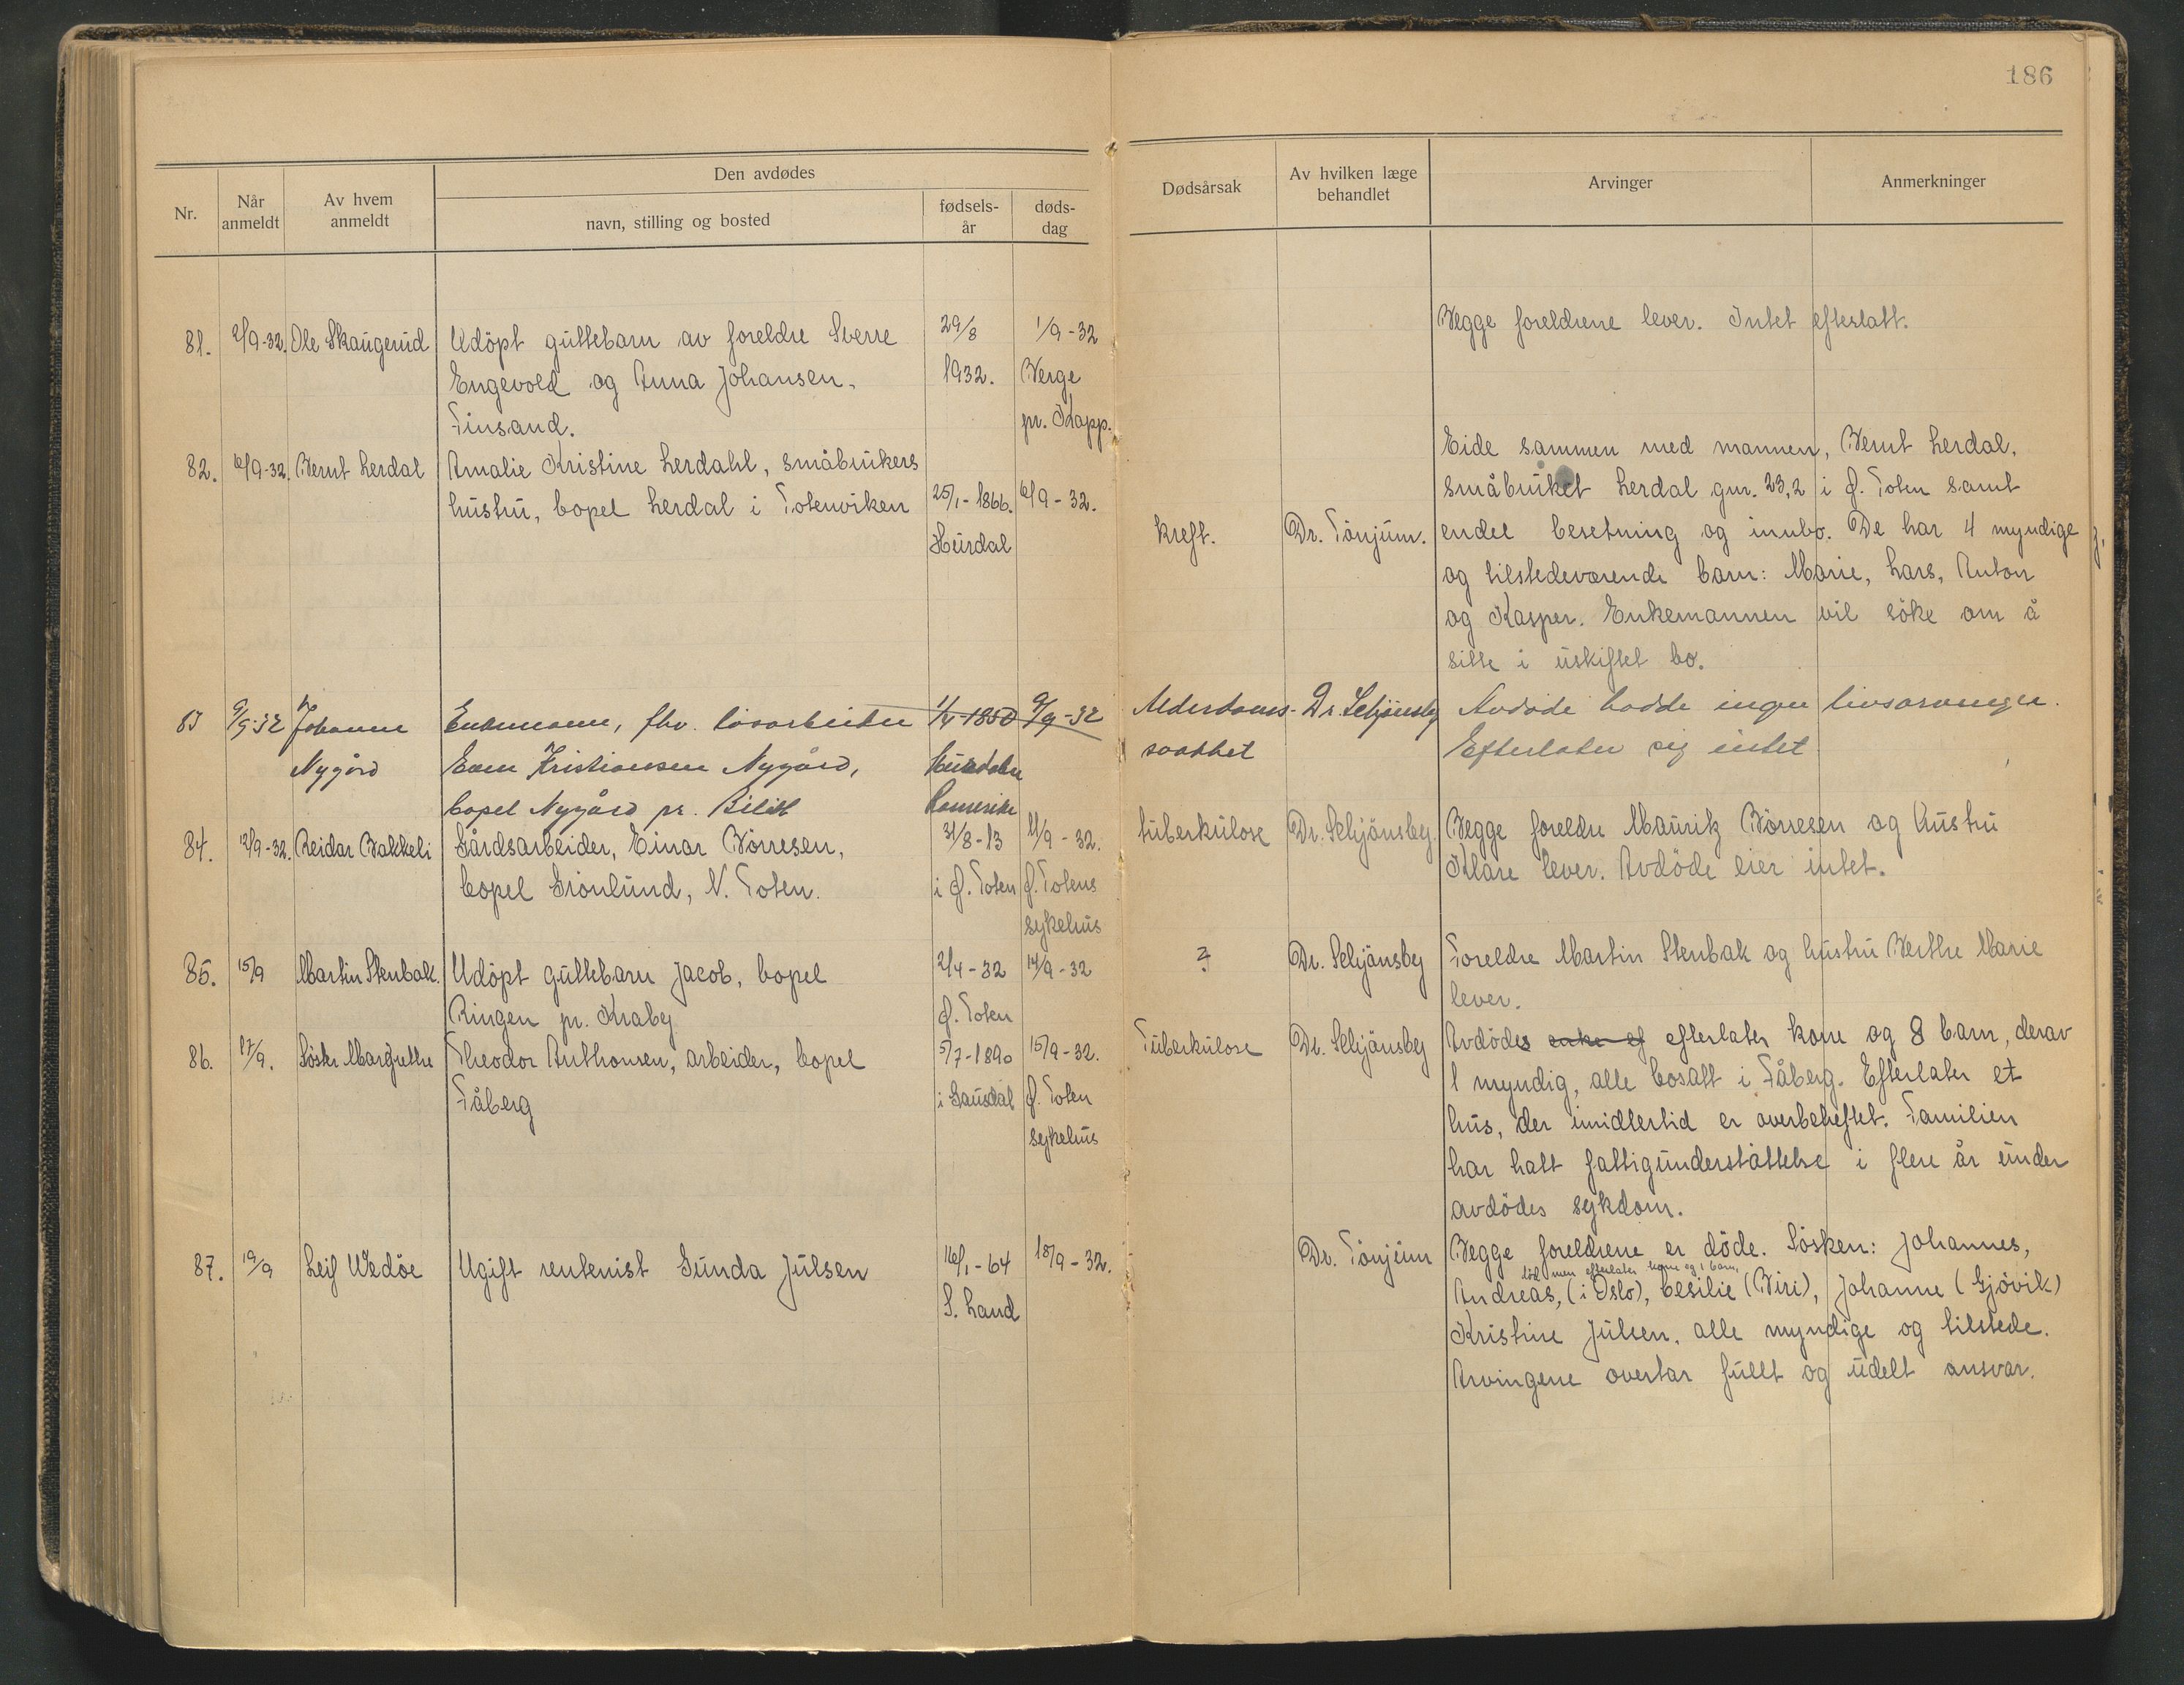 186
Nr.
Når anmeldt
Av hvem anmeldt
Den avdødes
navn, stilling og bosted
fødsels-år
døds-dag
Dødsårsak
Av hvilken læge behandlet
Arvinger
Anmerkninger
81. 2/9-32. Ole Skaugerud Udöpt guttebarn av foreldre Sverre 29/8 1/9-32
Engevold og Anna Johansen, 1932. Verge
Finsand. pr. Kapp.
Begge foreldrene lever. Intet efterlatt.
82. 10/9-32. Bernt Lerdal Amalie Kristine Lerdahl, småbrukers
hustru, bopel Lerdal i Totenviken 25/1-1866. 6/9-32.
Hurdal
kreft. Dr. Tönjum.
Eide sammen med mannen, Bernt Lerdal,
småbruket Lerdal gnr. 23,2 i Ø. Toten samt
endel besetning og innbo. De har 4 myndige
og tilstedeværende barn: Marie, Lars, Anton
og Kasper. Enkemannen vil söke om å
sitte i uskiftet bo.
83 9/9-32 Johanne Enkemann, fhv. lösarbeider 1/4-1850 9/9-32
Nygård Even Kristiansen Nygård, Hurdalen
bopel Nygård pr. Bilitt Romerike
Alderdoms- Dr. Schjönsby Avdöde hadde ingen livsarvinger.
svakhet Efterlater sig intet
84. 12/9-32. Reidar Bakkeli Gårdsarbeider, Einar Börresen, 31/8-13 11/9-32.
bopel Grönlund, N. Toten. i Ø. Toten Ø. Totens
sykehus
tuberkulose Dr. Schjönsby Begge foreldre Mauritz Börresen og hustru
Klare lever. Avdöde eier intet.
85. 15/9 Martin Stenbak. Udöpt guttebarn Jacob, bopel 2/4-32 14/9-32
Ringen pr. Kraby Ø. Toten
? Dr. Schjönsby Foreldre Martin Stenbak og hustru Berthe Marie
lever.
86. 17/9. Söster Margrethe Theodor Anthonsen, arbeider, bopel 5/7-1890 15/9-32.
Fåberg i Gausdal Ø. Toten
sykehus
Tuberkulose Dr. Schjönsby Avdödes enke ef efterlater kone og 8 barn, derav
1 myndig, alle bosatt i Fåberg. Efterlater et
hus, der imidlertid er overbeheftet. Familien
har hatt fattigunderstöttelse i flere år under
avdödes sykdom.
87. 19/9 Leif Wedöe Ugift rentenist Gunda Julsen 16/1-64 18/9-32.
S. Land
Dr. Tönjum Begge foreldrene er döde. Sösken: Johannes,
död men efterlater kone og 1 barn,
Andreas, (i Oslo), Cesilie (Biri), Johanne (Gjövik)
Kristine Julsen, alle myndige og tilstede.
Arvingene overtar fullt og udelt ansvar.